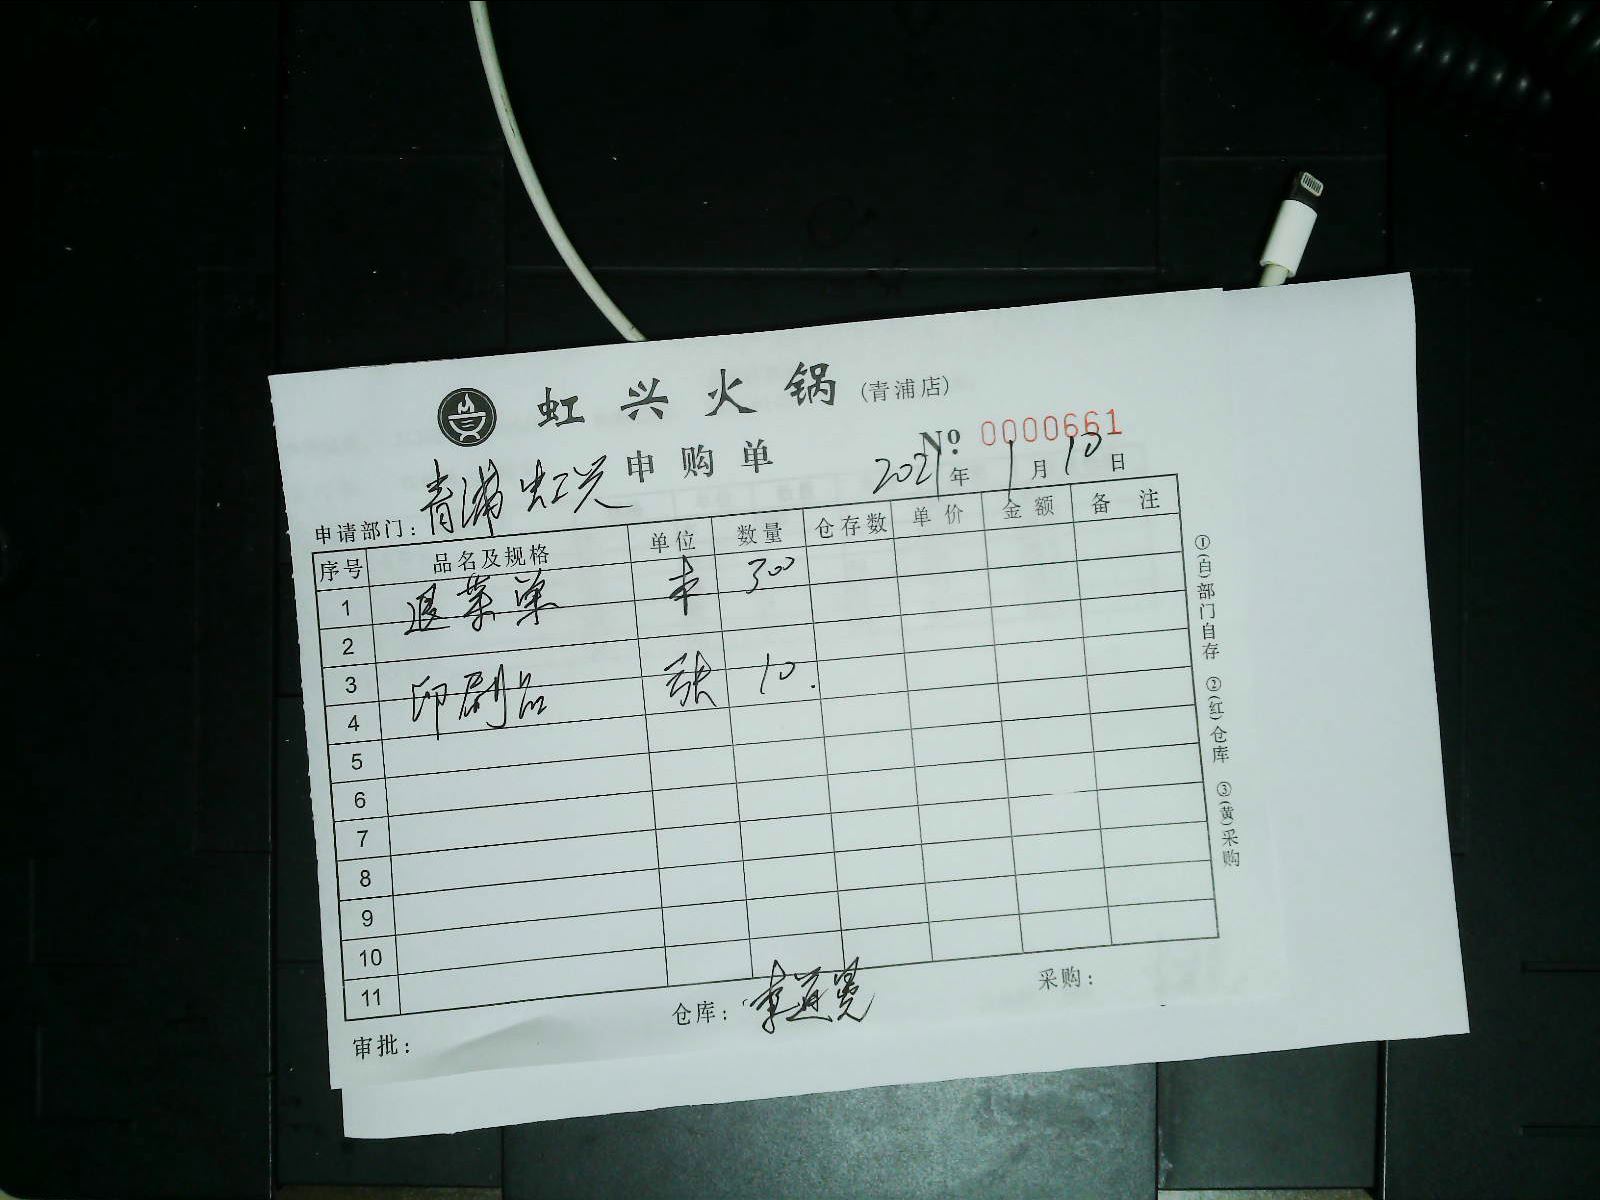 虹兴火锅 (青浦店)
申购单
№ 0000661
2021年1月10日
申请部门: 青浦虹兴
序号 品名及规格 单位 数量 仓存数 单价 金额 备 注
1 退菜单 本 300
2
3 印刷品 张 10.
4
5
6
7
8
9
10
11
审批: 仓库: 采购:
①(白)部门自存 ②(红)仓库 ③(黄)采购